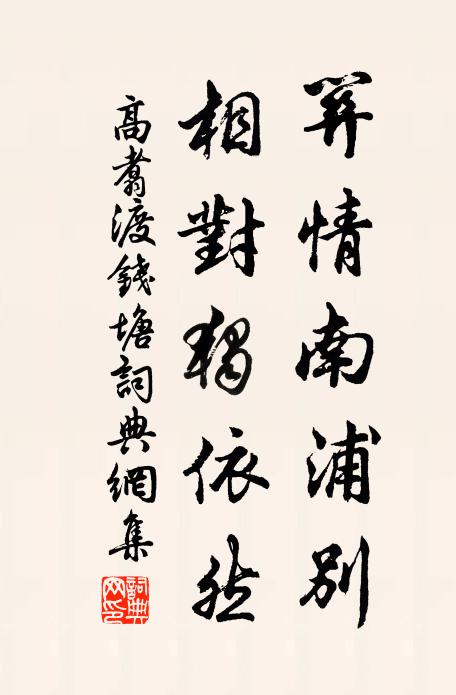 筭情南浦别
相對獨依然
高翥渡錢塘詞典網集
詞典
网印